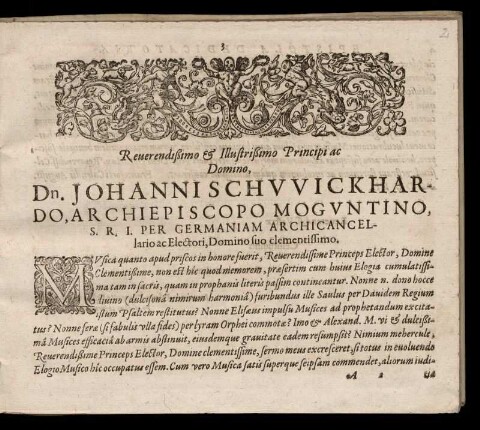 3
2
Reuerendißimo & Illustrißimo Principi ac
Domino,
Dn. JOHANNI SCHVVICKHAR-
DO, ARCHIEPISCOPO MOGVNTINO,
S. R. I. PER GERMANIAM ARCHICANCEL-
lario ac Electori, Domino suo clementissimo.
MVsica quanto apud priscos in honore fuerit, Reuerendißime Princeps Elector, Domine
Clementißime, non est hîc quod memorem, præsertim cum huius Elogia cumulatißi-
ma tam in sacris, quam in prophanis literis passim contineantur. Nonne n. dono hocce
diuino (dulcisonâ nimirum harmoniâ) furibundus ille Saulus per Dauidem Regium
illum Psaltem restitutus? Nonne Eliseus impulsu Musices ad prophetandum excita-
tus? Nonne feræ (si fabulis vlla fides) per lyram Orphei commotæ? Imo & Alexand. M. vi & dulcißi-
mâ Musices efficaciâ ab armis abstinuit, eiusdemque grauitate eadem resumpsit? Nimium mehercule,
Reuerendißime Princeps Elector, Domine clementissime, sermo meus excresceret, si totus in euoluendo
Elogio Musico hîc occupatus essem. Cum vero Musica satis superque seipsam commendet, aliorum iudi-
A 2